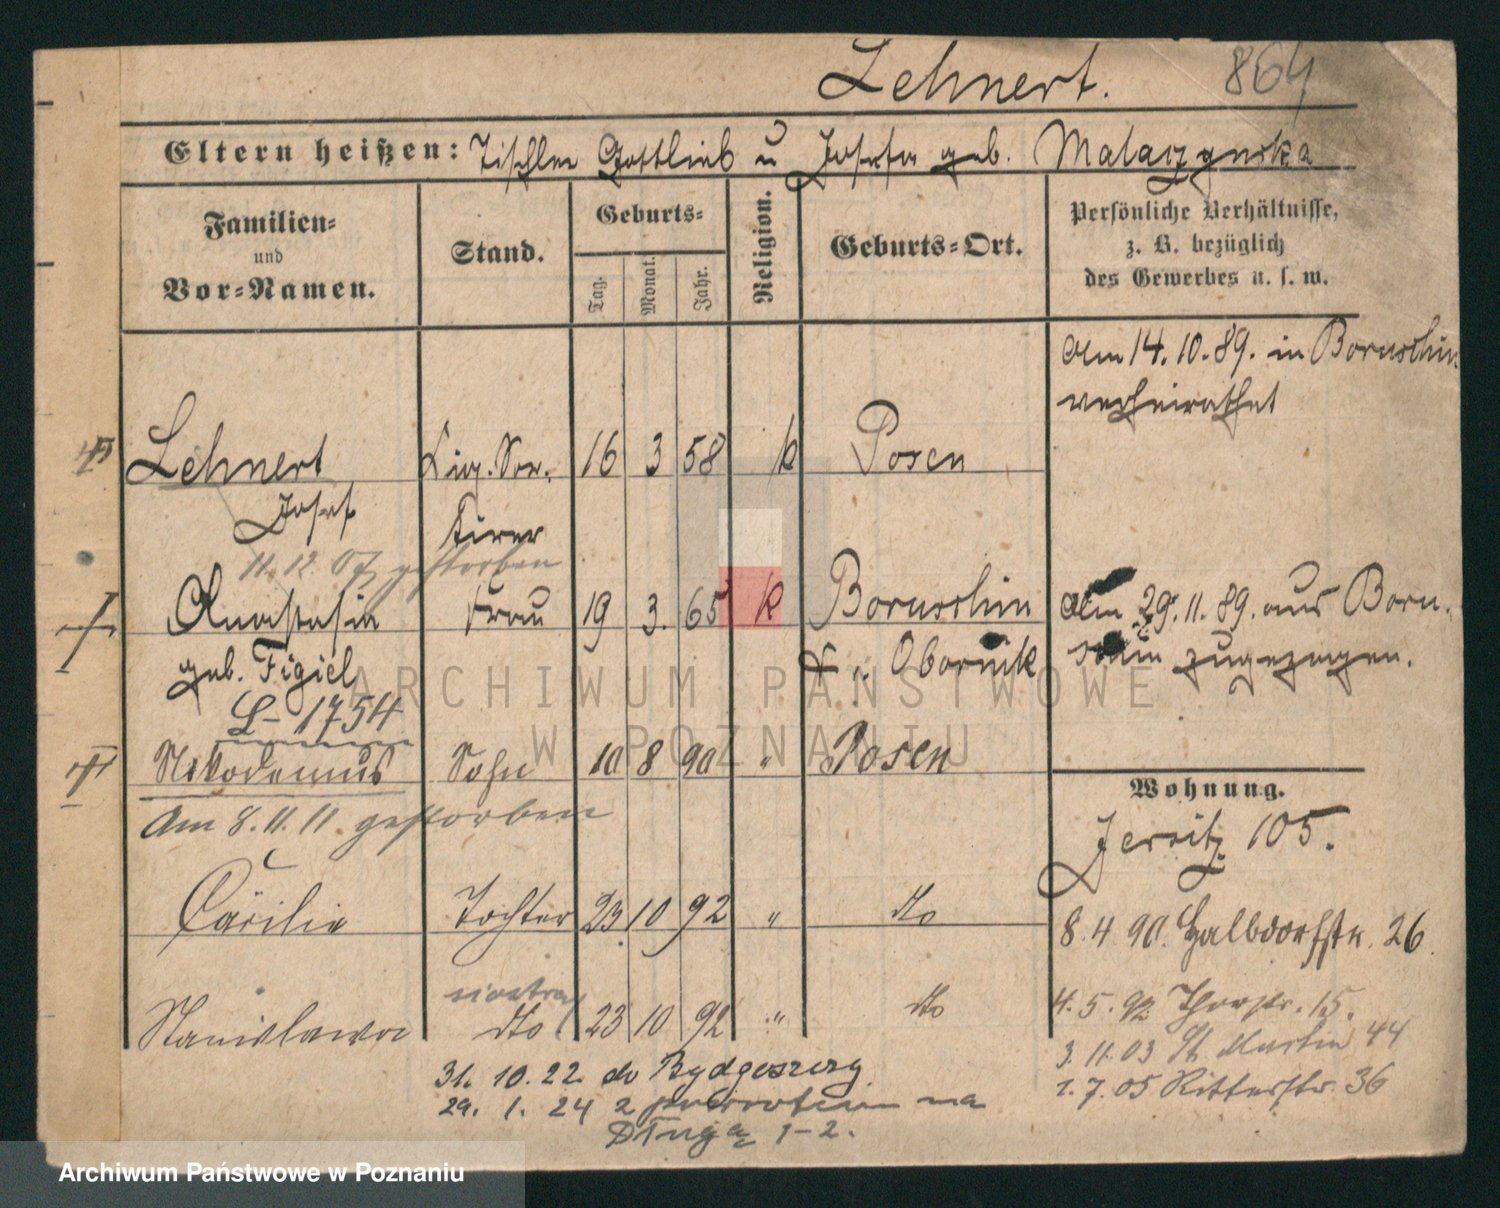 Lehnert. 864
Eltern heißen: Tischler Gottlieb u Josefa geb.
Familien=
und
Vor=Namen.
Stand.
Geburts=
Tag.
Monat.
Jahr.
Religion.
Geburts=Ort.
Persönliche Verhältnisse,
z. B. bezüglich
des Gewerbes u. s. w.
Am 14. 10. 89. in Boruschin
verheirathet
Lehnert 16 3 58 k Posen
Josef
11. 12. 07 gestorben
Anastasia Frau 19 3. 65 k Boruschin Am 29. 11. 89. aus Boru-
geb. Figiel Obornik schin zugezogen.
L- 1754
Nikodemus Sohn 10 8 90 " Posen
Am 8. 11. 11 gestorben
Wohnung.
Jersitz 105.
Cäcilie Tochter 23. 10 92 " dto
8. 4 90. Halbdorfstr. 26
siostra
Stanislawa dto 23 10 92 " dto
4. 5. 92 Thorstr. 15.
3. 11. 03 St. Martin 44
1. 7. 05 Ritterstr. 36
31. 10. 22 do Bydgoszczy
29. 1. 24 z powrotem na
Długą 1-2.
ARCHIWUM PAŃSTWOWE
W POZNANIU
Archiwum Państwowe w Poznaniu